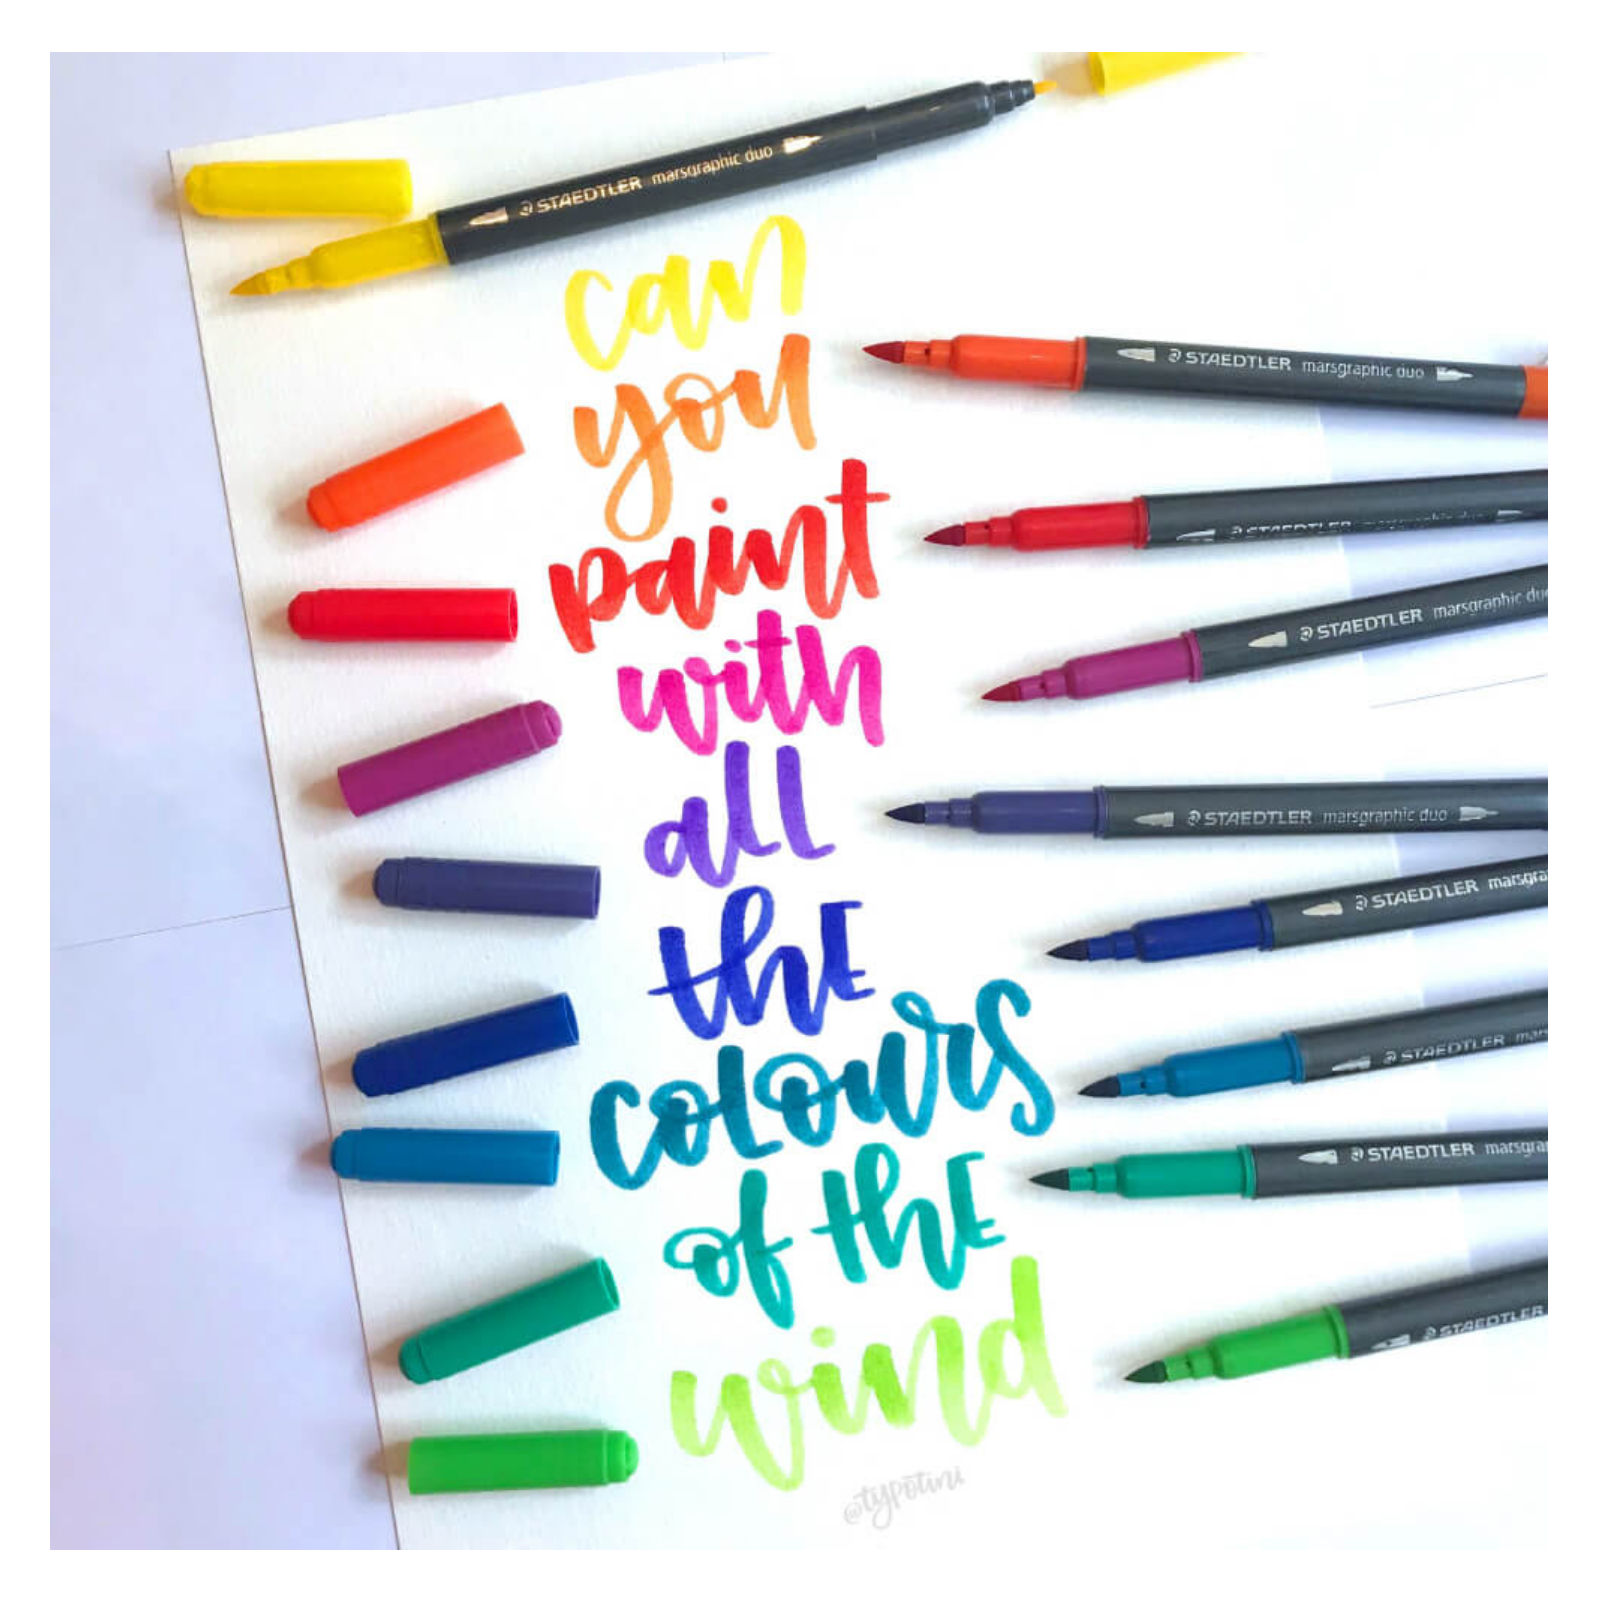 STAEDTLER marsgraphic duo
can
you
STAEDTLER marsgraphic duo
paint
STAEDTLER marsgraphic duo
with
STAEDTLER marsgraphic duo
all
STAEDTLER marsgraphic duo
the
STAEDTLER marsgra
colours
STAEDTLER mar
of the
STAEDTLER marsgra
wind
STAEDTLER
@typotini